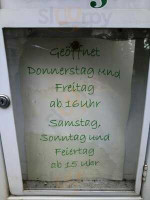 Geöffnet
Donnerstag und
Freitag
ab 16 Uhr
Samstag,
Sonntag und
Feiertag
ab 15 Uhr